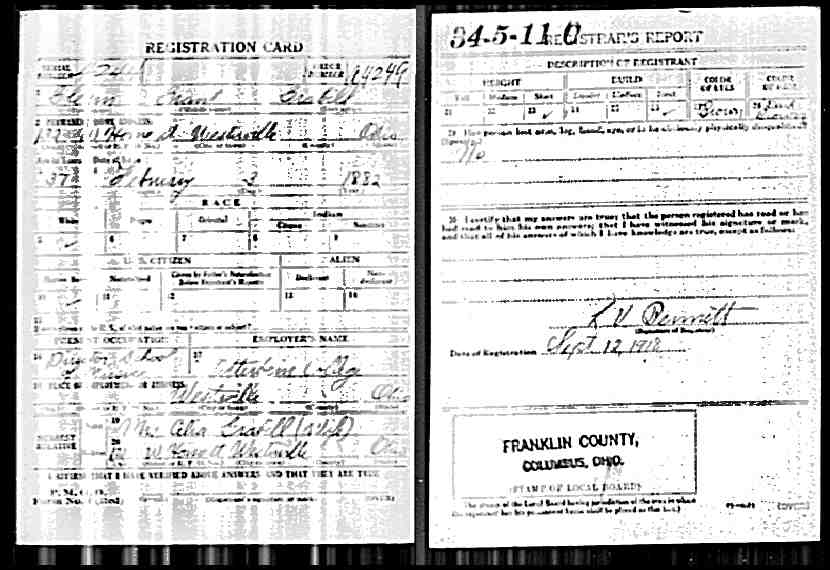 REGISTRATION CARD
SERIAL NUMBER
ORDER NUMBER
Glenn Grant Grabill
2 PERMANENT HOME ADDRESS:
W Home St Westerville Ohio
Age in Years Date of Birth
37 February 3 1882
RACE
White Negro Oriental Indian
Citizen Noncitizen
5 6 7 8 9
U. S. CITIZEN ALIEN
Native Born Naturalized Citizen by Father's Naturalization Before Registrant's Majority Declarant Non-declarant
10 11 12 13 14
15
If not a citizen of the U. S., of what nation are you a citizen or subject?
PRESENT OCCUPATION EMPLOYER'S NAME
16 Director School of Music 17 Otterbein College
18 PLACE OF EMPLOYMENT OR BUSINESS:
Westerville Ohio
NEAREST RELATIVE
19 Mrs Grabill (wife)
20 W Home St Westerville Ohio
I AFFIRM THAT I HAVE VERIFIED ABOVE ANSWERS AND THAT THEY ARE TRUE
P. M. G. O.
Form No. 1 (Red) (Registrant's signature or mark) (OVER)
34-5-11 C REGISTRAR'S REPORT
DESCRIPTION OF REGISTRANT
HEIGHT BUILD COLOR OF EYES COLOR OF HAIR
Tall Medium Short Slender Medium Stout
21 22 23 ✓ 24 25 26 ✓ 27 Brown 28
29 Has person lost arm, leg, hand, eye, or is he obviously physically disqualified?
(Specify.)
No
30 I certify that my answers are true; that the person registered has read or has
had read to him his own answers; that I have witnessed his signature or mark,
and that all of his answers of which I have knowledge are true, except as follows:
(Signature of Registrar)
Date of Registration Sept 12, 1918
FRANKLIN COUNTY,
COLUMBUS, OHIO.
(STAMP OF LOCAL BOARD)
(The stamp of the Local Board having jurisdiction of the area in which
the registrant has his permanent home shall be placed in this box.)
(OVER)